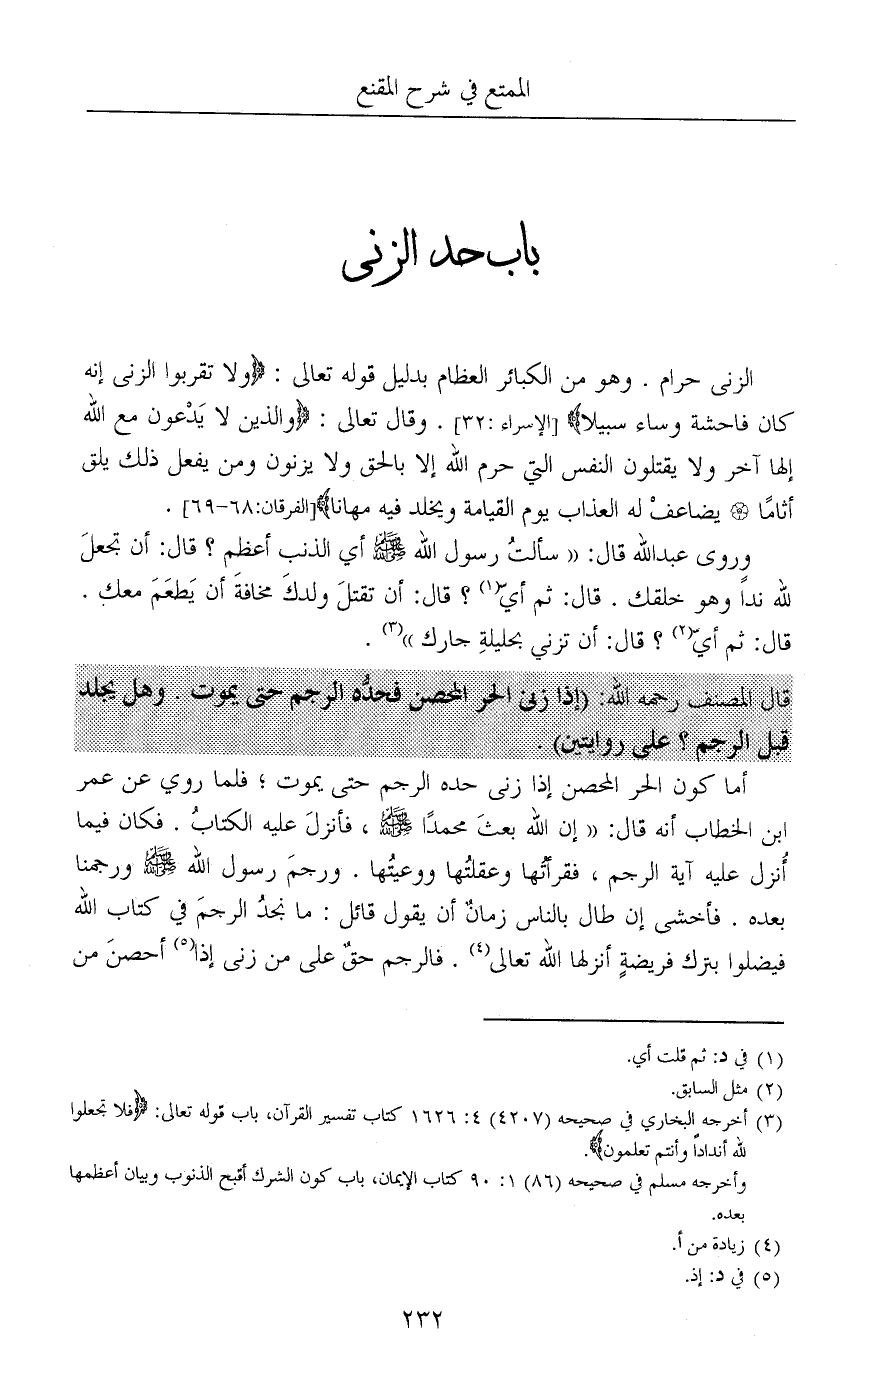 الممتع في شرح المقنع
باب حد الزنى
الزنى حرام . وهو من الكبائر العظام بدليل قوله تعالى : ﴿ولا تقربوا الزنى إنه
كان فاحشة وساء سبيلا﴾ [الإسراء :٣٢] . وقال تعالى : ﴿والذين لا يَدْعون مع الله
إلها آخر ولا يقتلون النفس التي حرم الله إلا بالحق ولا يزنون ومن يفعل ذلك يلق
أثامًا ۞ يضاعفْ له العذاب يوم القيامة ويخلد فيه مهانا﴾[الفرقان:٦٨-٦٩] .
وروى عبدالله قال: « سألتُ رسول الله ﷺ أي الذنب أعظم ؟ قال: أن تجعلَ
لله نداً وهو خلقك . قال: ثم أيّ(١) ؟ قال: أن تقتلَ ولدكَ مخافةَ أن يَطعَمَ معك .
قال: ثم أيّ(٢) ؟ قال: أن تزني بحليلةِ جارك »(٣) .
قال المصنف رحمه الله: (إذا زنى الحر المحصن فحدُّه الرجم حتى يموت . وهل يجلد
قبل الرجم ؟ على روايتين) .
أما كون الحر المحصن إذا زنى حده الرجم حتى يموت ؛ فلما روي عن عمر
ابن الخطاب أنه قال: « إن الله بعثَ محمدًا ﷺ ، فأنزلَ عليه الكتابُ . فكان فيما
أُنزل عليه آية الرجم ، فقرأتُها وعقلتُها ووعيتُها . ورجمَ رسول الله ﷺ ورجمنا
بعده . فأخشى إن طال بالناس زمانٌ أن يقول قائل : ما نجدُ الرجمَ في كتاب الله
فيضلوا بترك فريضةٍ أنزلها الله تعالى(٤) . فالرجم حقٌ على من زنى إذا(٥) أحصنَ من
(١) في د: ثم قلت أي.
(٢) مثل السابق.
(٣) أخرجه البخاري في صحيحه (٤٢٠٧) ٤: ١٦٢٦ كتاب تفسير القرآن، باب قوله تعالى: ﴿فلا تجعلوا
لله أنداداً وأنتم تعلمون﴾.
وأخرجه مسلم في صحيحه (٨٦) ١: ٩٠ كتاب الإيمان، باب كون الشرك أقبح الذنوب وبيان أعظمها
بعده.
(٤) زيادة من أ.
(٥) في د: إذ.
٢٣٢